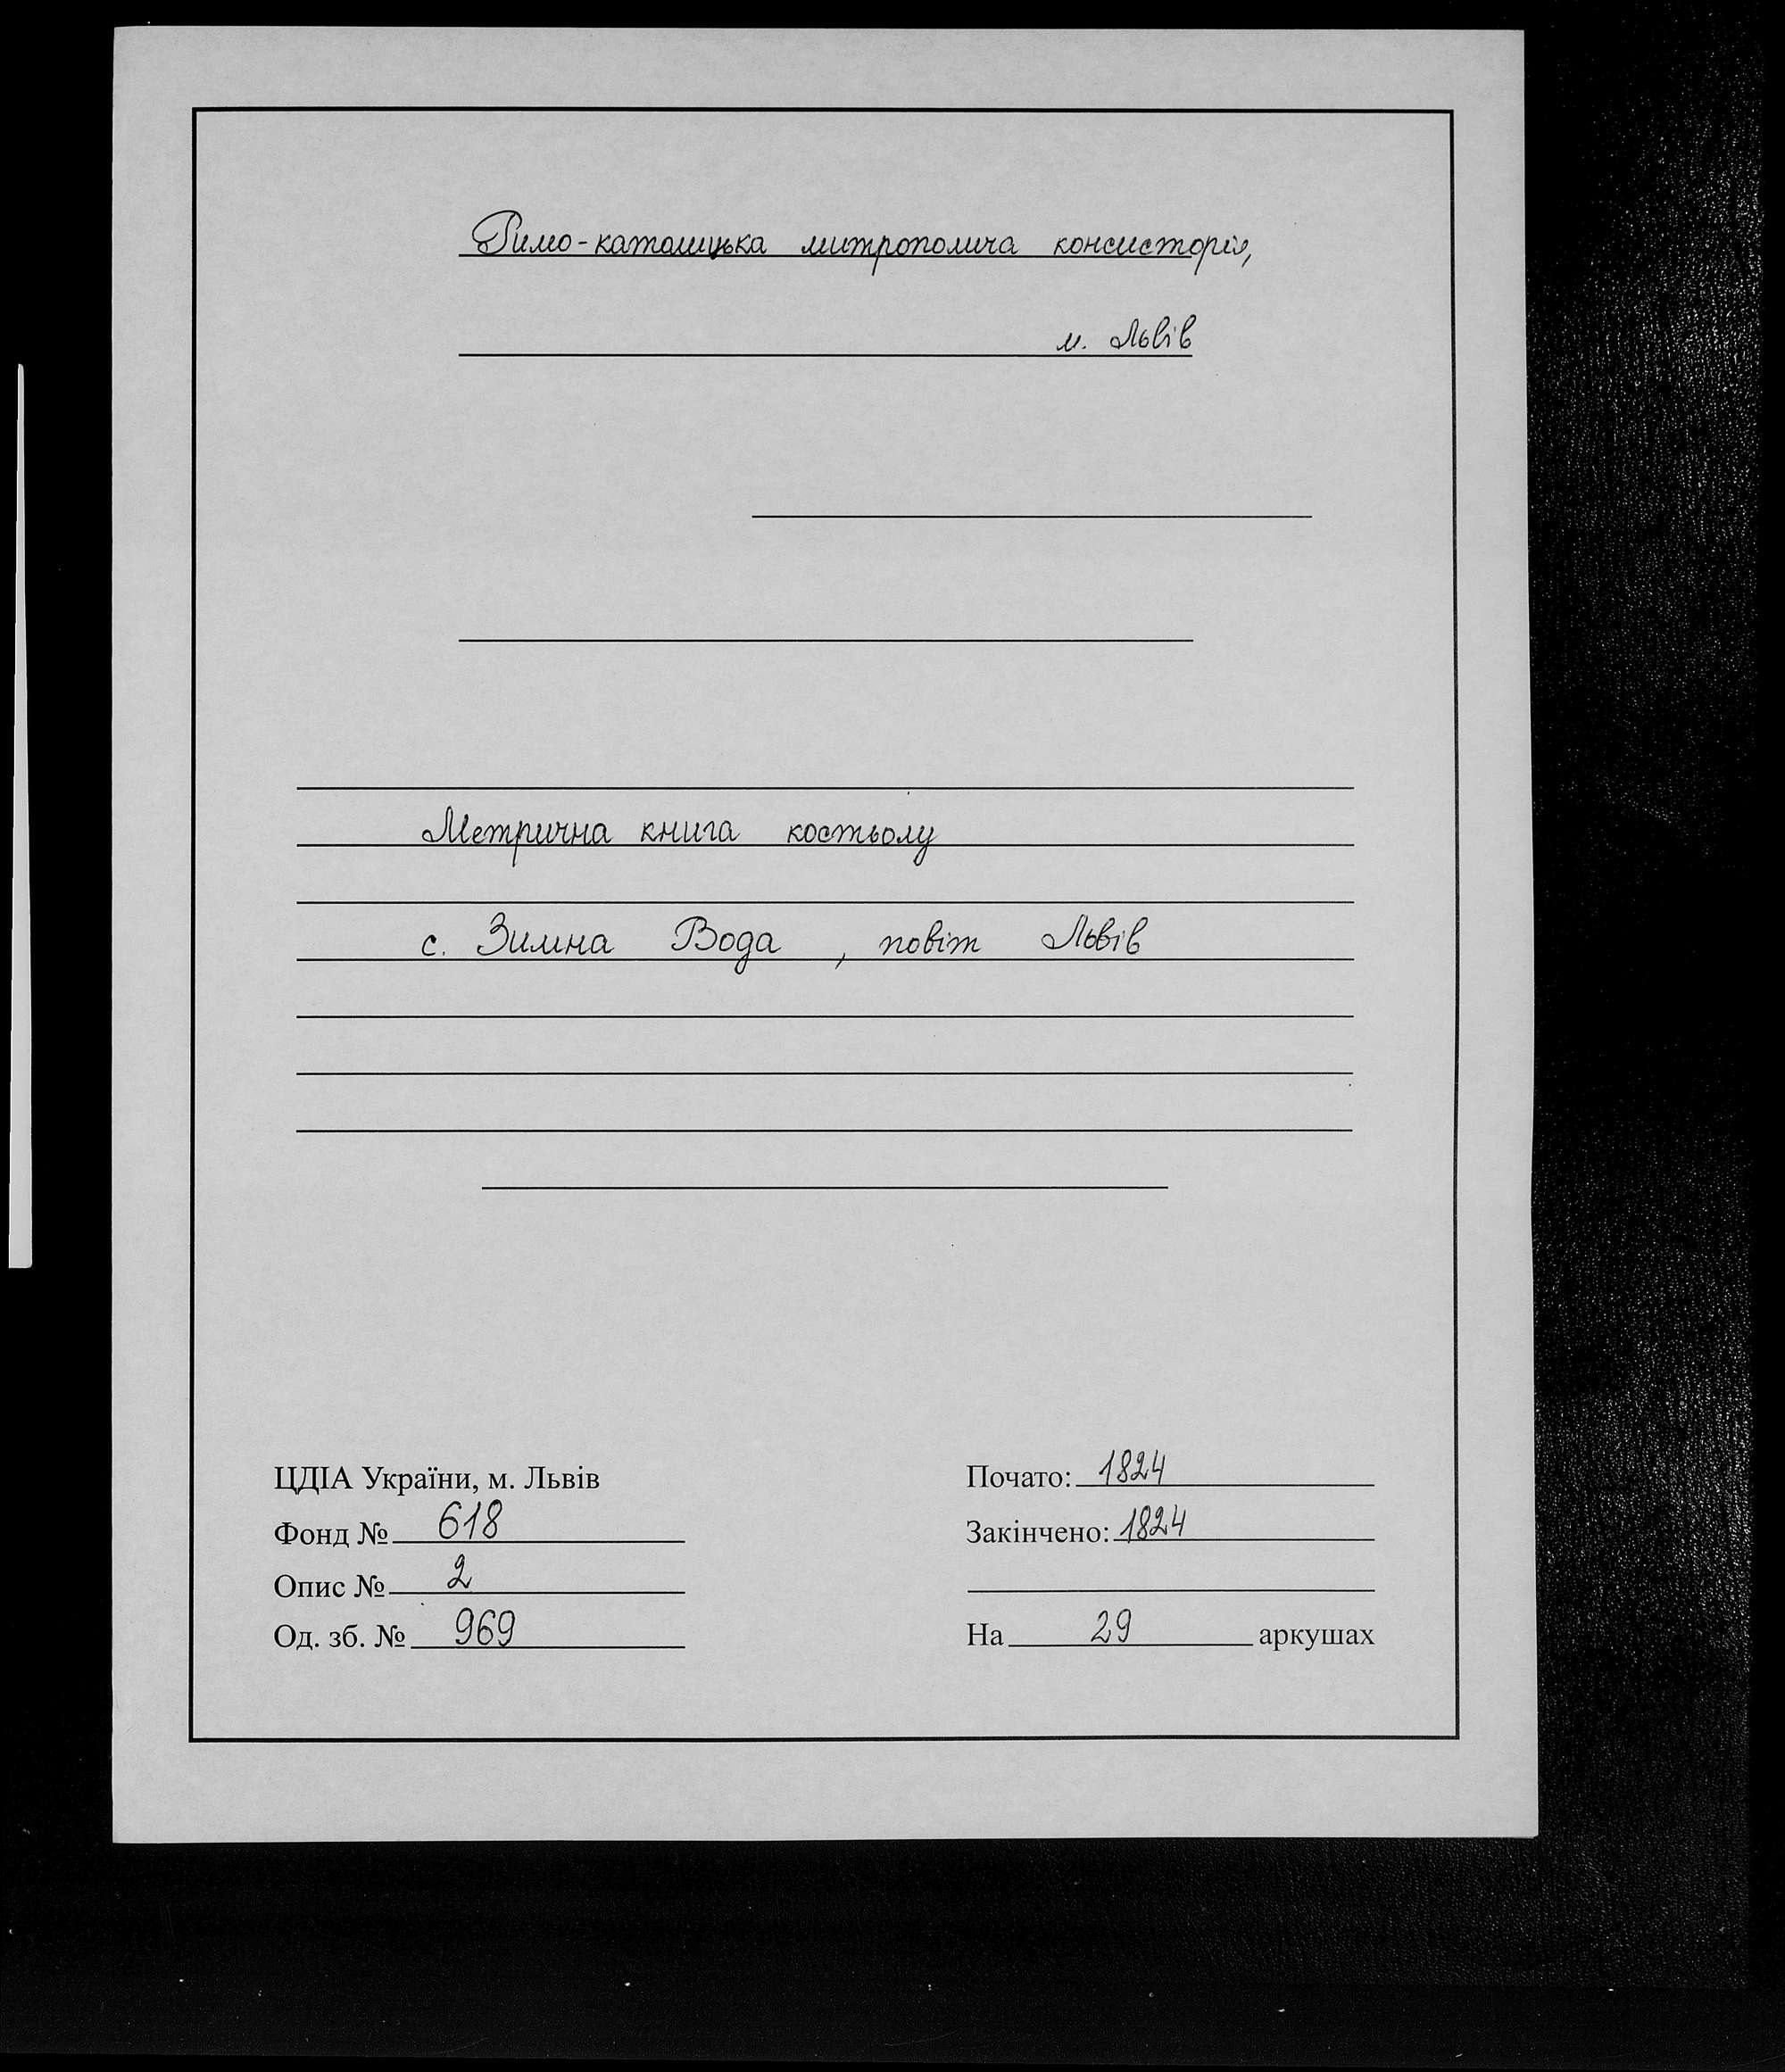 Римо-католицька митрополича консисторія,
м. Львів
Метрична книга костьолу
с. Зимна Вода, повіт Львів
ЦДІА України, м. Львів
Фонд № 618
Опис № 2
Од. зб. № 969
Почато: 1824
Закінчено: 1824
На 29 аркушах